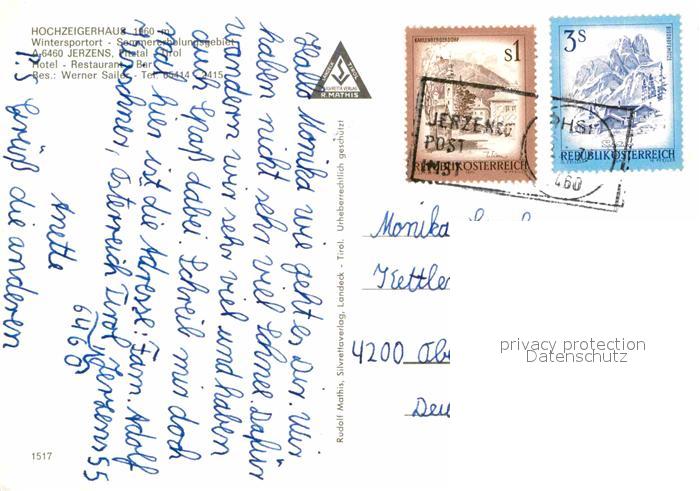 HOCHZEIGERHAUS 1860 m
Wintersportort - Sommererholungsgebiet
A-6460 JERZENS, Pitztal - Tirol
Hotel - Restaurant - Bar
Bes.: Werner Sailer - Tel. 05414 / 2415
Hallo Monika wie geht es Dir. Wir
haben nicht sehr viel Schnee. Dafür
wandern wir sehr viel und haben
auch Spaß dabei. Schreib mir doch
mal hier ist die Adresse: Fam. Adolf
Österreich Tirol Jerzens 55
6460
Anette
P.S Grüß die anderen
1517
SILVRETTA VERLAG
R. MATHIS
Rudolf Mathis, Silvrettaverlag, Landeck - Tirol. Urheberrechtlich geschützt!
KAHLENBERGERDORF
s1
REPUBLIK ÖSTERREICH
3s
BISCHOFSMÜTZE
REPUBLIK ÖSTERREICH
JERZENS
POST
IMST
6460
Monika
Kettle
4200 Ob
Deu
privacy protection
Datenschutz